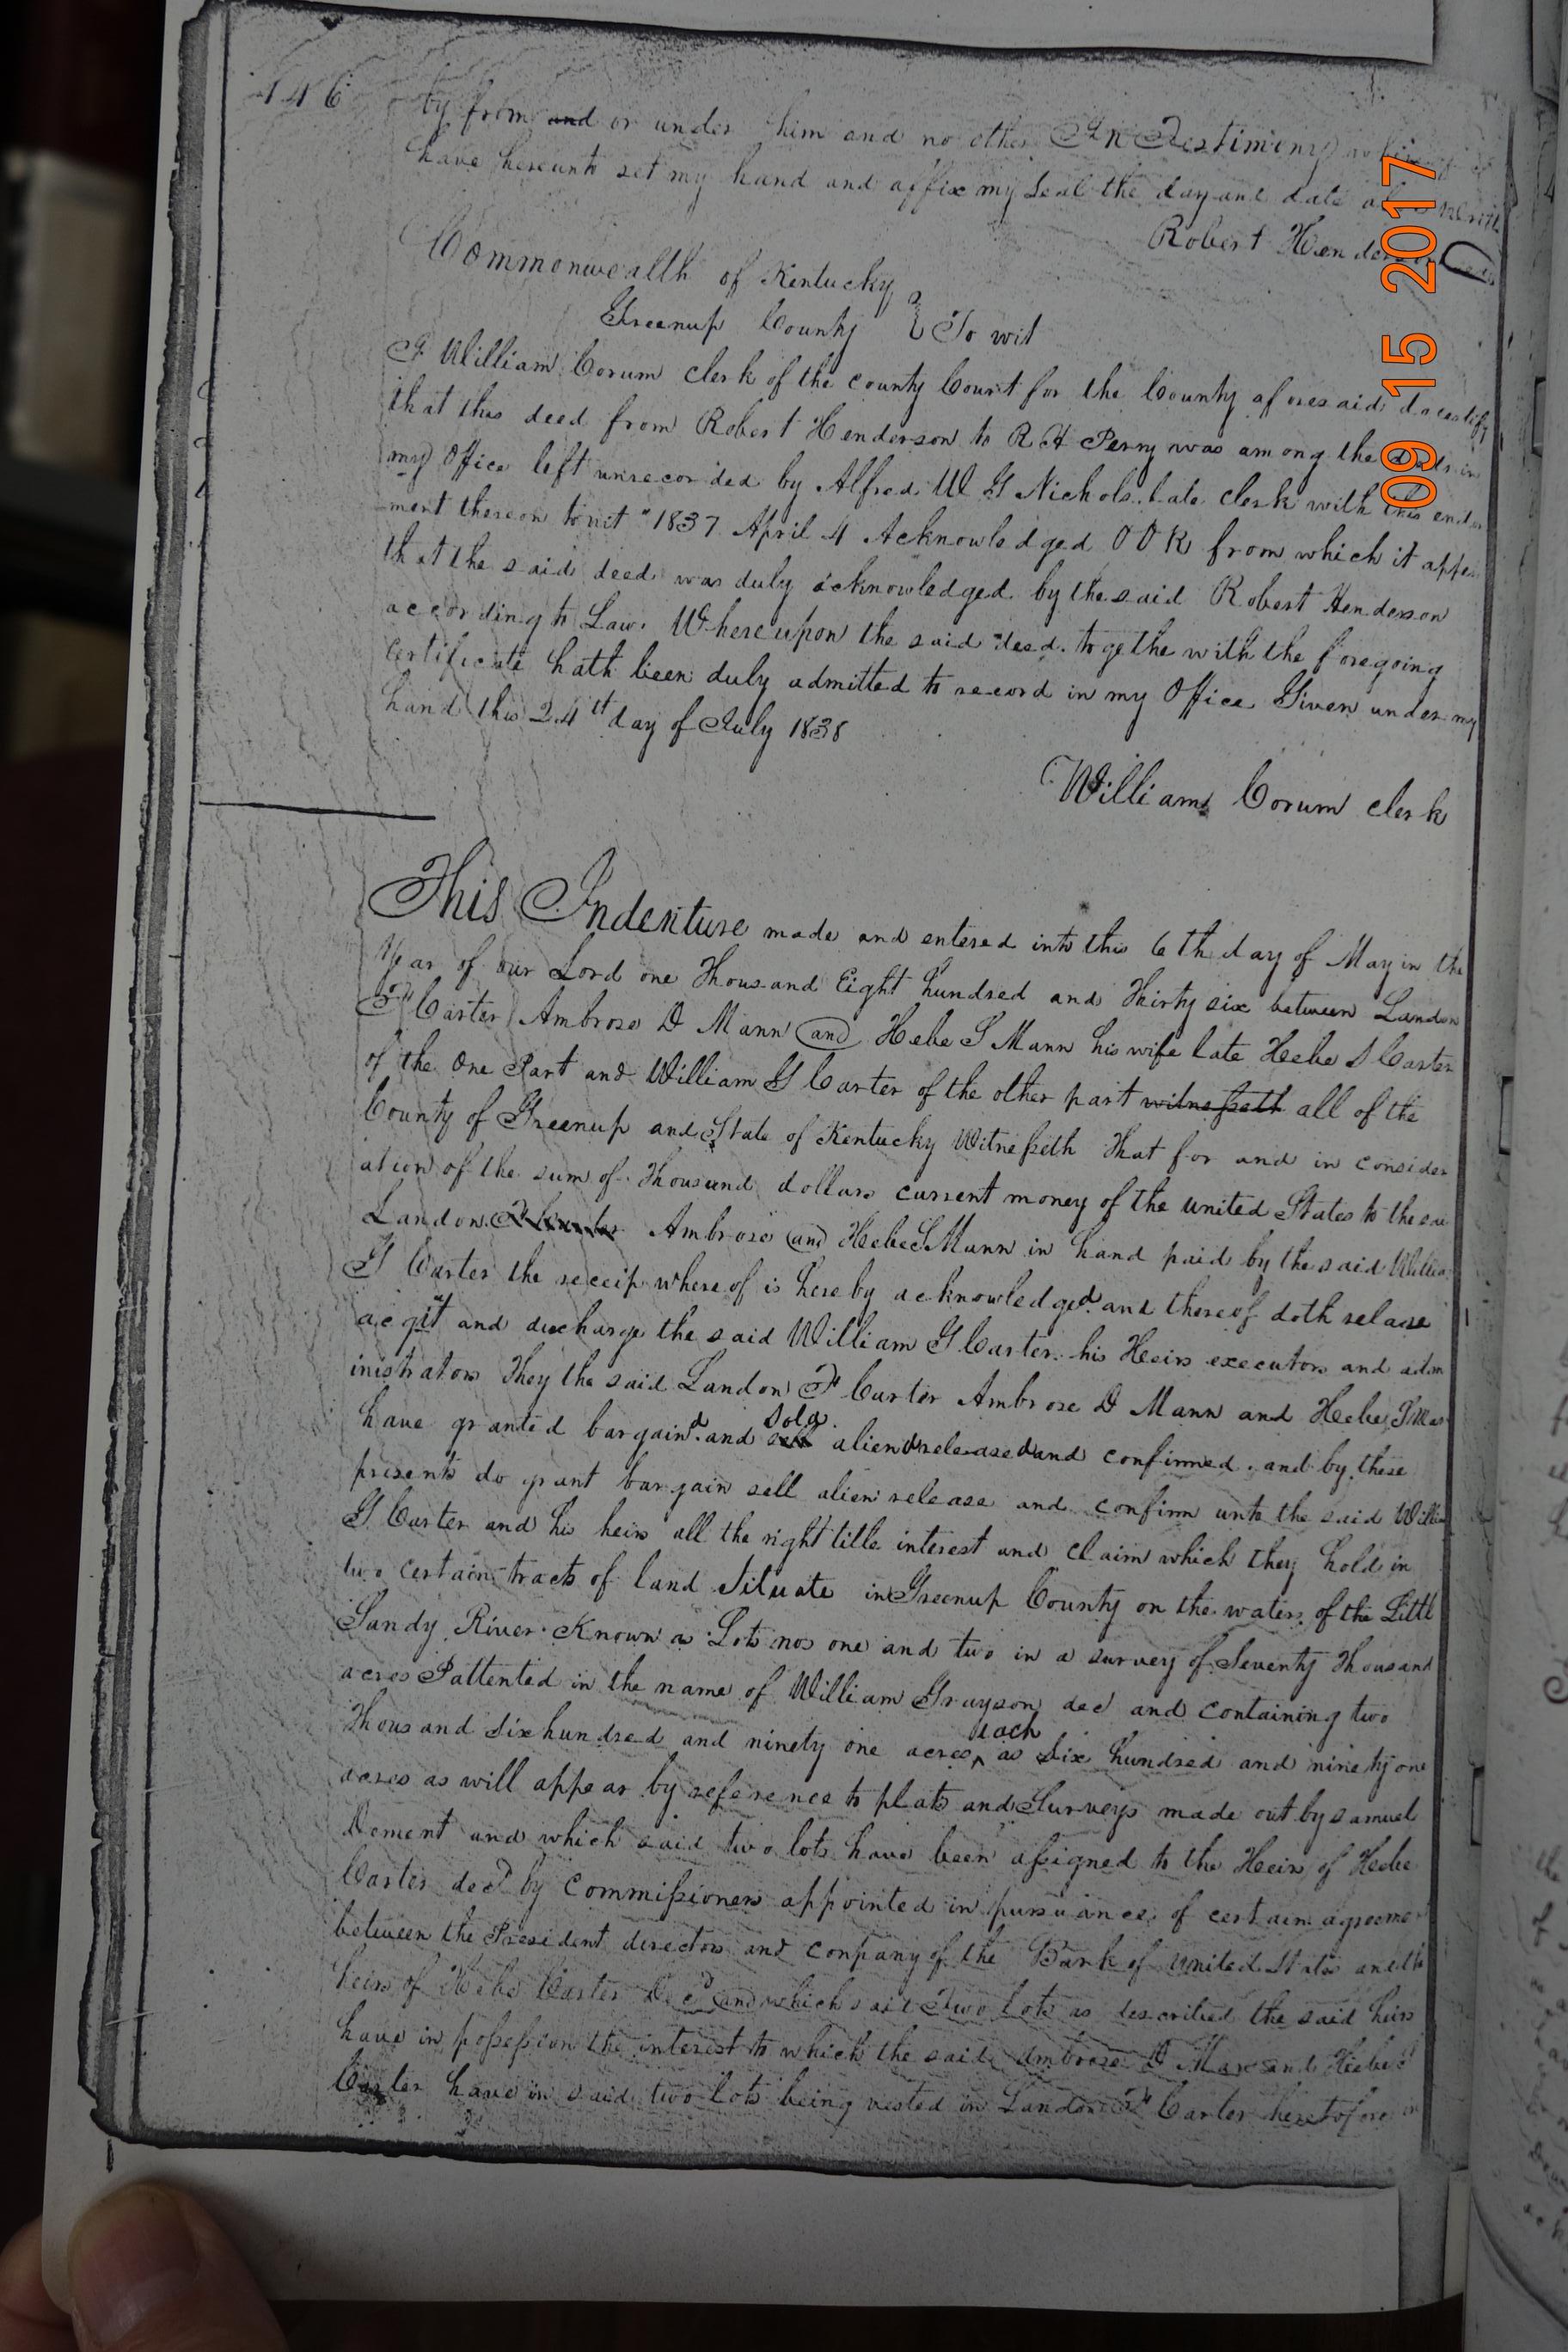 146
by from and or under him and no other In Testimony
have hereunto set my hand and affix my Seal the day and date
Robert
Commonwealth of Kentucky
Greenup County } To wit
I William Corum clerk of the county Court for the County aforesaid do certify
that this deed from Robert Henderson to R H Perry was among the deeds in
my Office left unrecorded by Alfred W G Nichols late clerk with this
ment thereon towit "1837 April 4 Acknowledged O O K from which it
that the said deed was duly acknowledged by the said Robert Henderson
according to Law. Whereupon the said deed. togethe with the foregoing
certificate hath been duly admitted to record in my Office Given under my
hand this 24th day of July 1838
William Corum clerk
This Indenture made and entered into this 6th day of May in the
Year of our Lord one Thousand Eight hundred and Thirty six between Landon
F Carter Ambrose D Mann and Hebe S Mann his wife late Hebe S Carter
of the One Part and William G Carter of the other part witnesseth all of the
County of Greenup and State of Kentucky Witnesseth That for and in consider
ation of the sum of Thousand dollars current money of the united States to the
Landon F Carter Ambrose and Hebe S Mann in hand paid by the said
G Carter the receip whereof is hereby acknowledged and thereof doth release
acqit and discharge the said William G Carter his Heirs executors and adm
inistrators They the said Landon F Carter Ambrose D Mann and Hebe S
have granted bargaind and sell sold aliend released and confirmed. and by these
presents do grant bargain sell alien release and confirm unto the said
G Carter and his heirs all the right title interest and claim which they hold in
two certain tracts of land Situate in Greenup County on the waters of the Littl
Sandy River Known as Lots nos one and two in a survey of Seventy Thousand
acres Pattented in the name of William Grayson dec and containing two
Thousand Six hundred and ninety one acres each as Six hundred and ninety one
acres as will appear by reference to plats and Surveys made out by samuel
Dement and which said two lots have been assigned to the Heirs of Hebe
Carter decd by Commissioners appointed in pursuance of certain
between the President directors and conpany of the Bank of United States and the
heirs of Hebe Carter Decd and which said Two Lots as described the said heirs
have in possession the interest to which the said Ambrose D Man and Hebe S
Carter have in said two lots being vested in Landon F Carter heretofore
09 15 2017